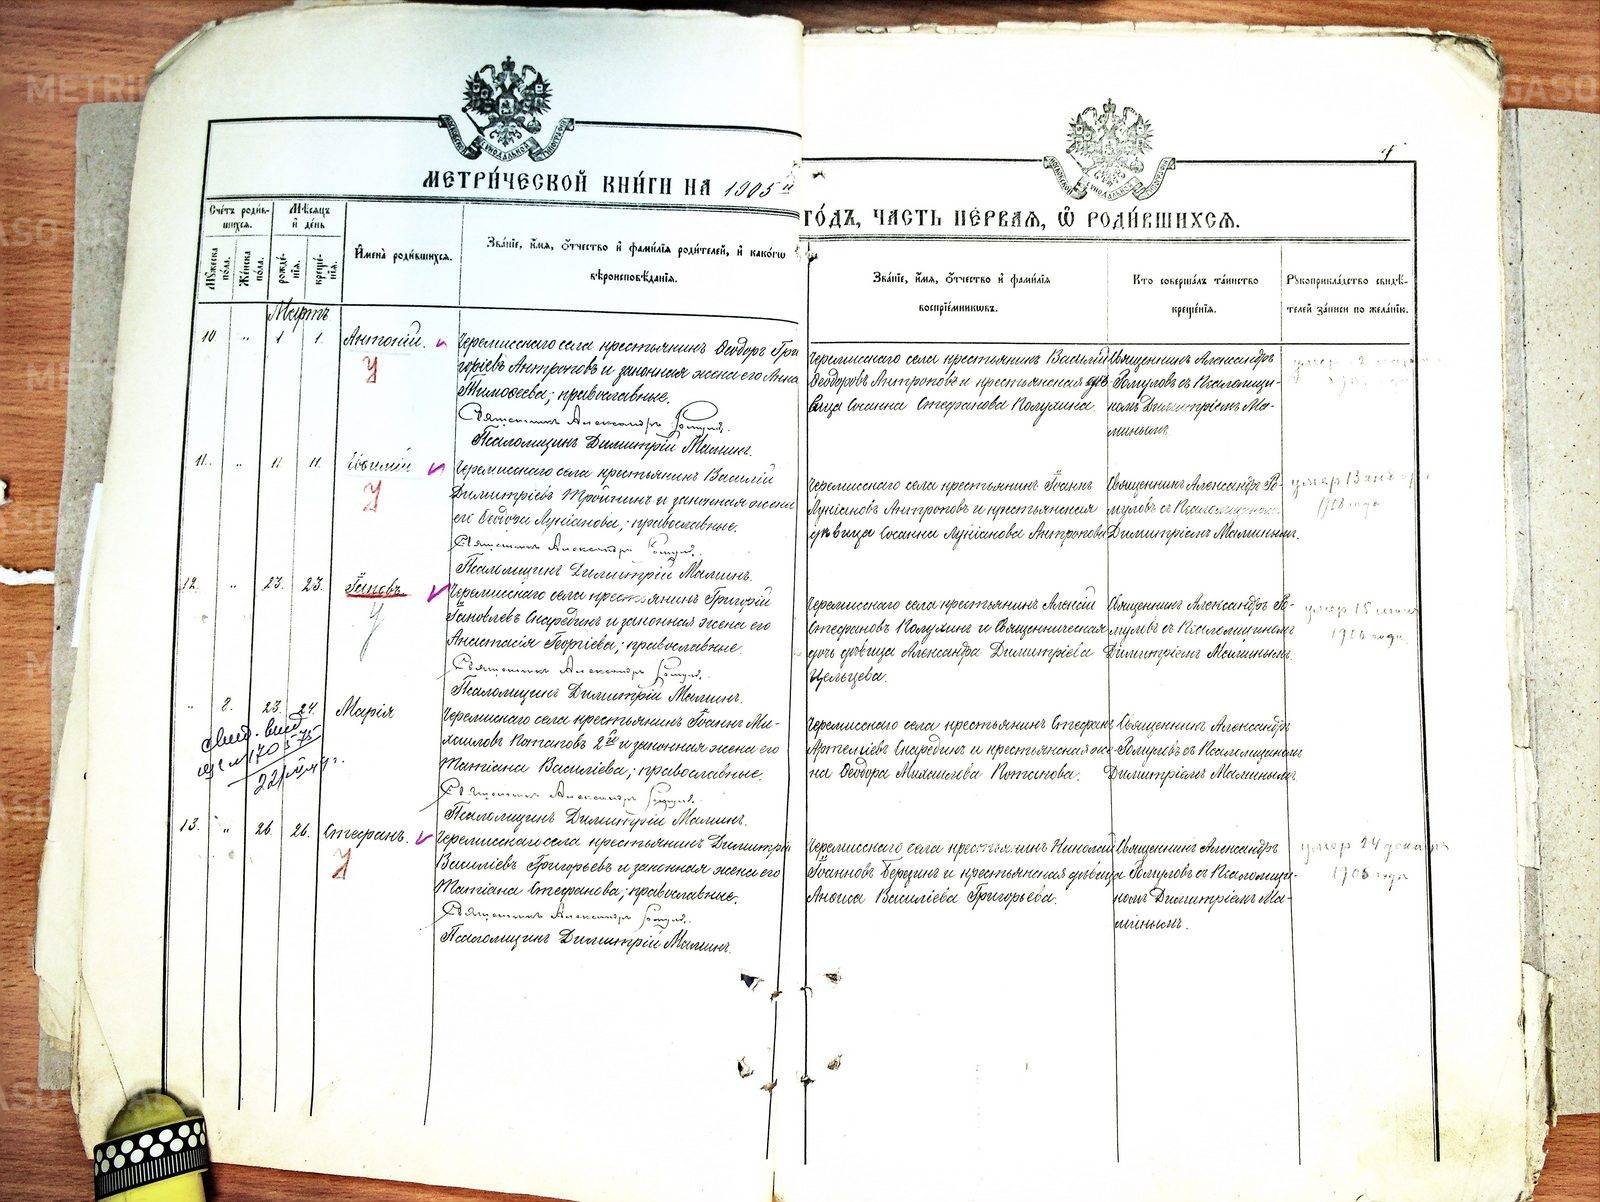 МЕТРИ́ЧЕСКОЙ КНИ́ГИ НА 1905 й
ГО́ДЪ, ЧАСТЬ ПЕ́РВАЯ, Ѡ РОДИ́ВШИХСЯ.
Сче́тъ роди́в-
шихся.
Мѣ́сяцъ
и́ де́нь
Му́жеска по́ла.
Же́нска по́ла.
рожде́-
нїя.
креще́-
нїя.
И́мена̀ роди́вшихся.
Зва́нїе, и́мя, о́тчество и́ фами́лїя роди́телей, и́ како́гѡ
вѣроисповѣ́данїя.
Зва́нїе, и́мя, о́тчество и́ фами́лїя
воспрїе́мниковъ.
Кто̀ соверша́лъ та́инство
креще́нїя.
Рукоприкла́дство свидѣ́-
телей за́писи по жела́нїю.
Мартъ
10 „ 1 1. Антоній.
У
Черемисскаго села крестьянинъ Ѳеодоръ Гри
горіевъ Антроповъ и законная жена его Анна
Тимоѳеева; православные.
Священникъ Александръ Ромуловъ.
Псаломщикъ Димитрій Малинъ.
Черемисскаго села крестьянинъ Василій
Ѳеодоровъ Антроповъ и крестьянская дѣ-
вица Сосанна Стефанова Полухина.
Священникъ Александръ
Ромуловъ съ Псаломщи-
комъ Димитріемъ Ма-
линымъ.
11. „ 11. 11. Евѳимій
У
Черемисскаго села крестьянинъ Василій
Димитріевъ и законная жена
его Лукіанова; православные.
Священникъ Александръ Ромуловъ.
Псаломщикъ Димитрій Малинъ.
Черемисскаго села крестьянинъ Іоаннъ
Лукіановъ Антроповъ и крестьянская
дѣвица Сосанна Лукіанова Антропова
Священникъ Александръ Ро-
муловъ съ Псаломщикомъ
Димитріемъ Малинымъ.
умер 13
1908 года
12. „ 23. 23. Іаковъ
У
Черемисскаго села крестьянинъ Григорій
Іаковлевъ Снарединъ и законная жена его
Анастасія Георгіева; православные.
Священникъ Александръ Ромуловъ.
Псаломщикъ Димитрій Малинъ.
Черемисскаго села крестьянинъ Алексій
Стефановъ Полухинъ и Священническая
дочь дѣвица Александра Димитріева
Цельцева.
Священникъ Александръ Ро-
муловъ съ Псаломщикомъ
Димитріемъ Малинымъ.
умер 15
1906 года
„ 8. 23. 24. Марія
Черемискаго села крестьянинъ Іоаннъ Ми-
хаиловъ Потаповъ 2й и законная жена его
Татіана Василіева; православные.
Священникъ Александръ Ромуловъ.
Псаломщикъ Димитрій Малинъ.
Черемисскаго села крестьянинъ Стефанъ
Артеміевъ Снарединъ и крестьянская же-
на Ѳеодора Михаилова Потапова.
Священникъ Александръ
Ромуловъ съ Псаломщикомъ
Димитріемъ Малинымъ
13. „ 26. 26. Стефанъ.
У
Черемисскаго села крестьянинъ Димитрій
Василіевъ Григорьевъ и законная жена его
Татіана Стефанова; православные.
Священникъ Александръ Ромуловъ.
Псаломщикъ Димитрій Малинъ.
Черемисскаго села крестьянинъ Николай
Іоанновъ Берединъ и крестьянская дѣвица
Анѳиса Василіева Григорьева.
Священникъ Александръ
Ромуловъ съ Псаломщи-
комъ Димитріемъ Ма-
линымъ.
умер 24 декабря
1905 года